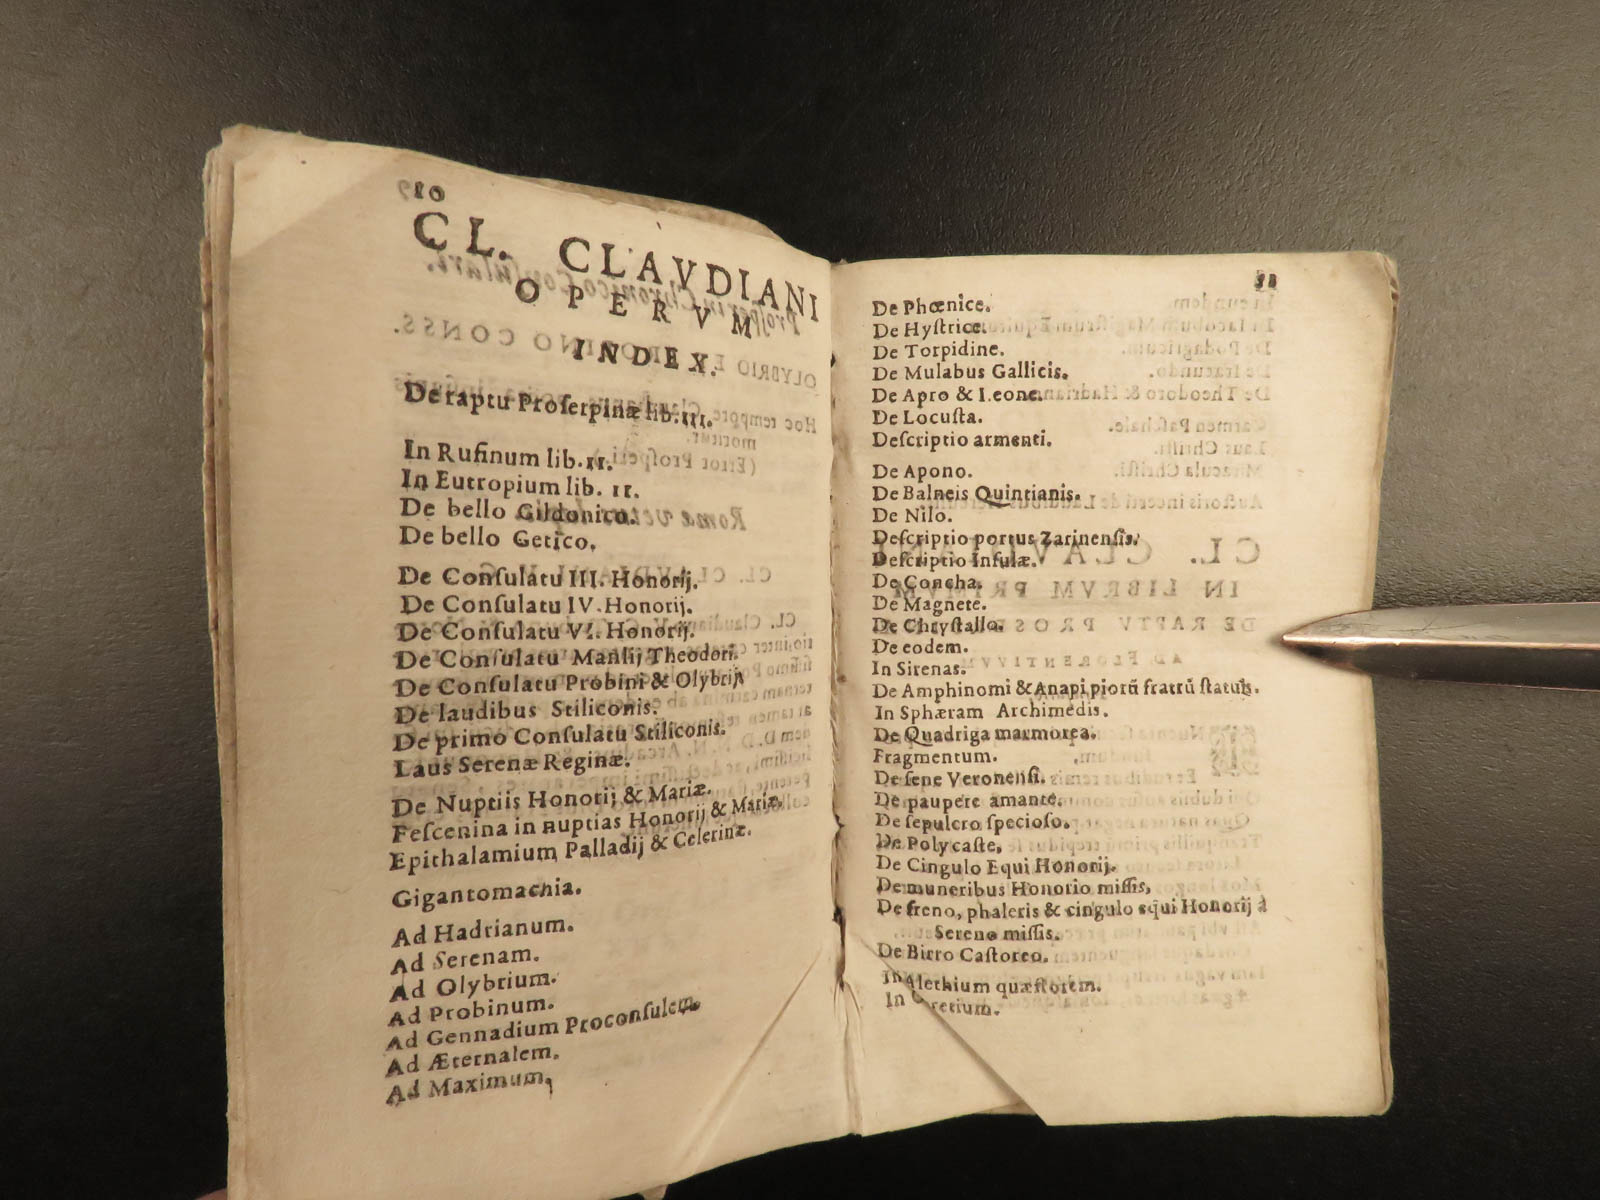 10
CL. CLAVDIANI
OPERVM
INDEX.
De raptu Proſerpinæ lib. III.
In Rufinum lib. II.
In Eutropium lib. II.
De bello Gildonico.
De bello Getico.
De Conſulatu III. Honorij.
De Conſulatu IV. Honorij.
De Conſulatu VI. Honorij.
De Conſulatu Manlij Theodori.
De Conſulatu Probini & Olybrij
De laudibus Stiliconis.
De primo Conſulatu Stiliconis.
Laus Serenæ Reginæ.
De Nuptiis Honorij & Mariæ.
Feſcenina in nuptias Honorij & Mariæ.
Epithalamium Palladij & Celerinæ.
Gigantomachia.
Ad Hadrianum.
Ad Serenam.
Ad Olybrium.
Ad Probinum.
Ad Gennadium Proconſulem.
Ad Æternalem.
Ad Maximum.
11
De Phœnice.
De Hyſtrice.
De Torpidine.
De Mulabus Gallicis.
De Apro & Leone.
De Locuſta.
Deſcriptio armenti.
De Apono.
De Balneis Quintianis.
De Nilo.
Deſcriptio portus Zarinenſis.
Deſcriptio Inſulæ.
De Concha.
De Magnete.
De Chryſtallo.
De eodem.
In Sirenas.
De Amphinomi & Anapi piorũ fratrũ ſtatuis.
In Sphæram Archimedis.
De Quadriga marmorea.
Fragmentum.
De ſene Veronenſi.
De paupere amante.
De ſepulcro ſpecioſo.
De Polycaſte.
De Cingulo Equi Honorij.
De muneribus Honorio miſſis.
De freno, phaleris & cingulo equi Honorij à
Sereno miſſis.
De Birro Caſtoreo.
In Alethium quæſtorem.
In